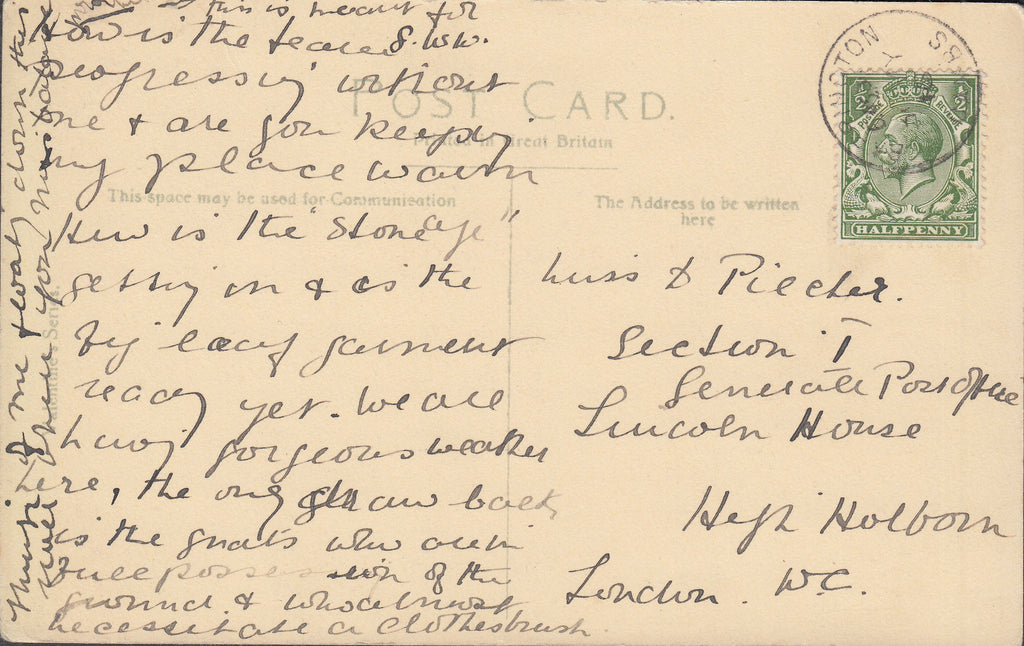 this is meant for
S. WW.
How is the
progressing without
me & are you keeping
my place warm
How is the "Stoneage"
getting on & is the
big lacy garment
ready yet. We are
having gorgeous weather
here, the only draw back
is the gnats who are in
full possession of the
ground & who almost
necessitate a clothesbrush.
Think of me & down this
when you
POST CARD.
Printed in Great Britain
This space may be used for Communication
The Address to be written
here
Miss D Pilcher.
Section T
General Post Office
Lincoln House
High Holborn
London. W.C.
½ ½
POSTAGE REVENUE
HALFPENNY